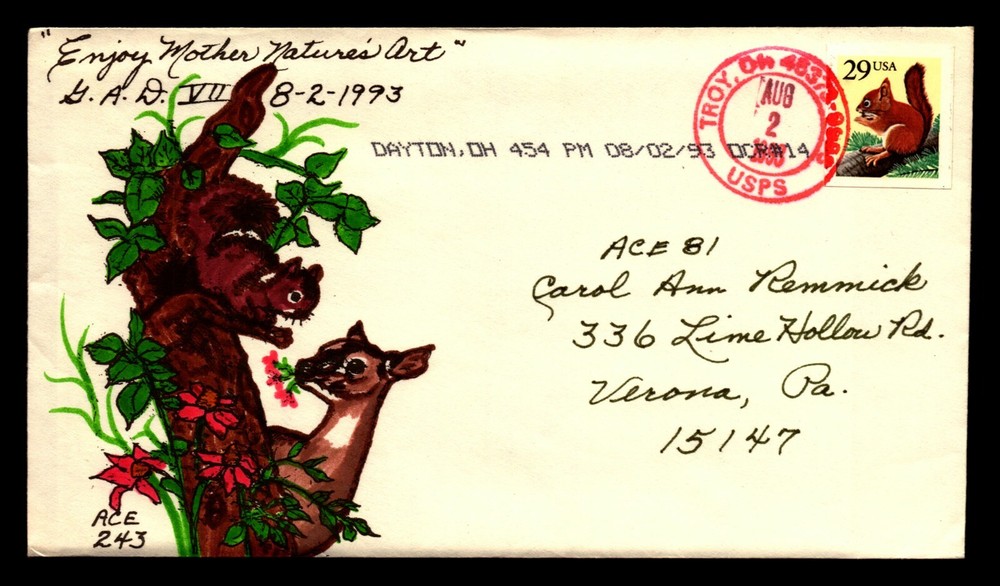 "Enjoy Mother Nature's Art"
G. A. D. VII 8-2-1993
DAYTON, OH 454 PM 08/02/93 OCR#14
TROY, OH 45373
AUG
2
1993
USPS
29 USA
ACE 81
Carol Ann Remmick
336 Lime Hollow Rd.
Verona, Pa.
15147
ACE
243